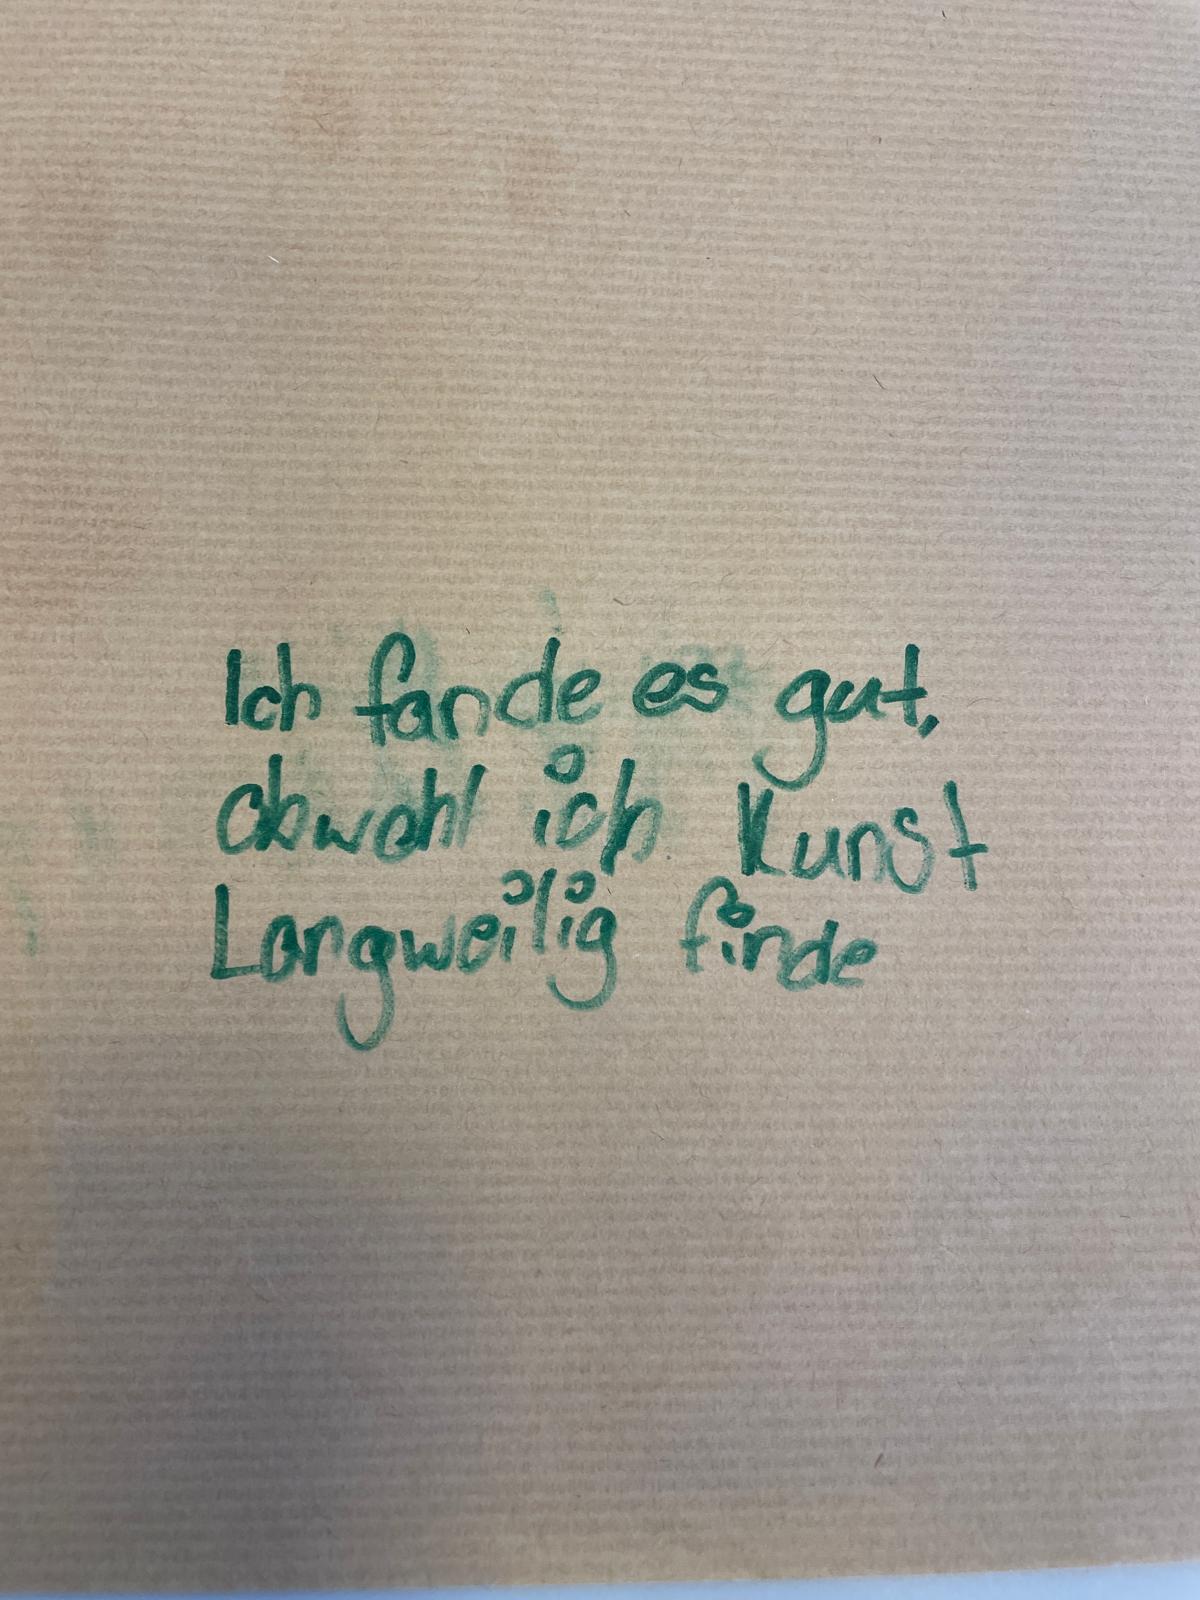 Ich fande es gut,
obwohl ich Kunst
Langweilig finde